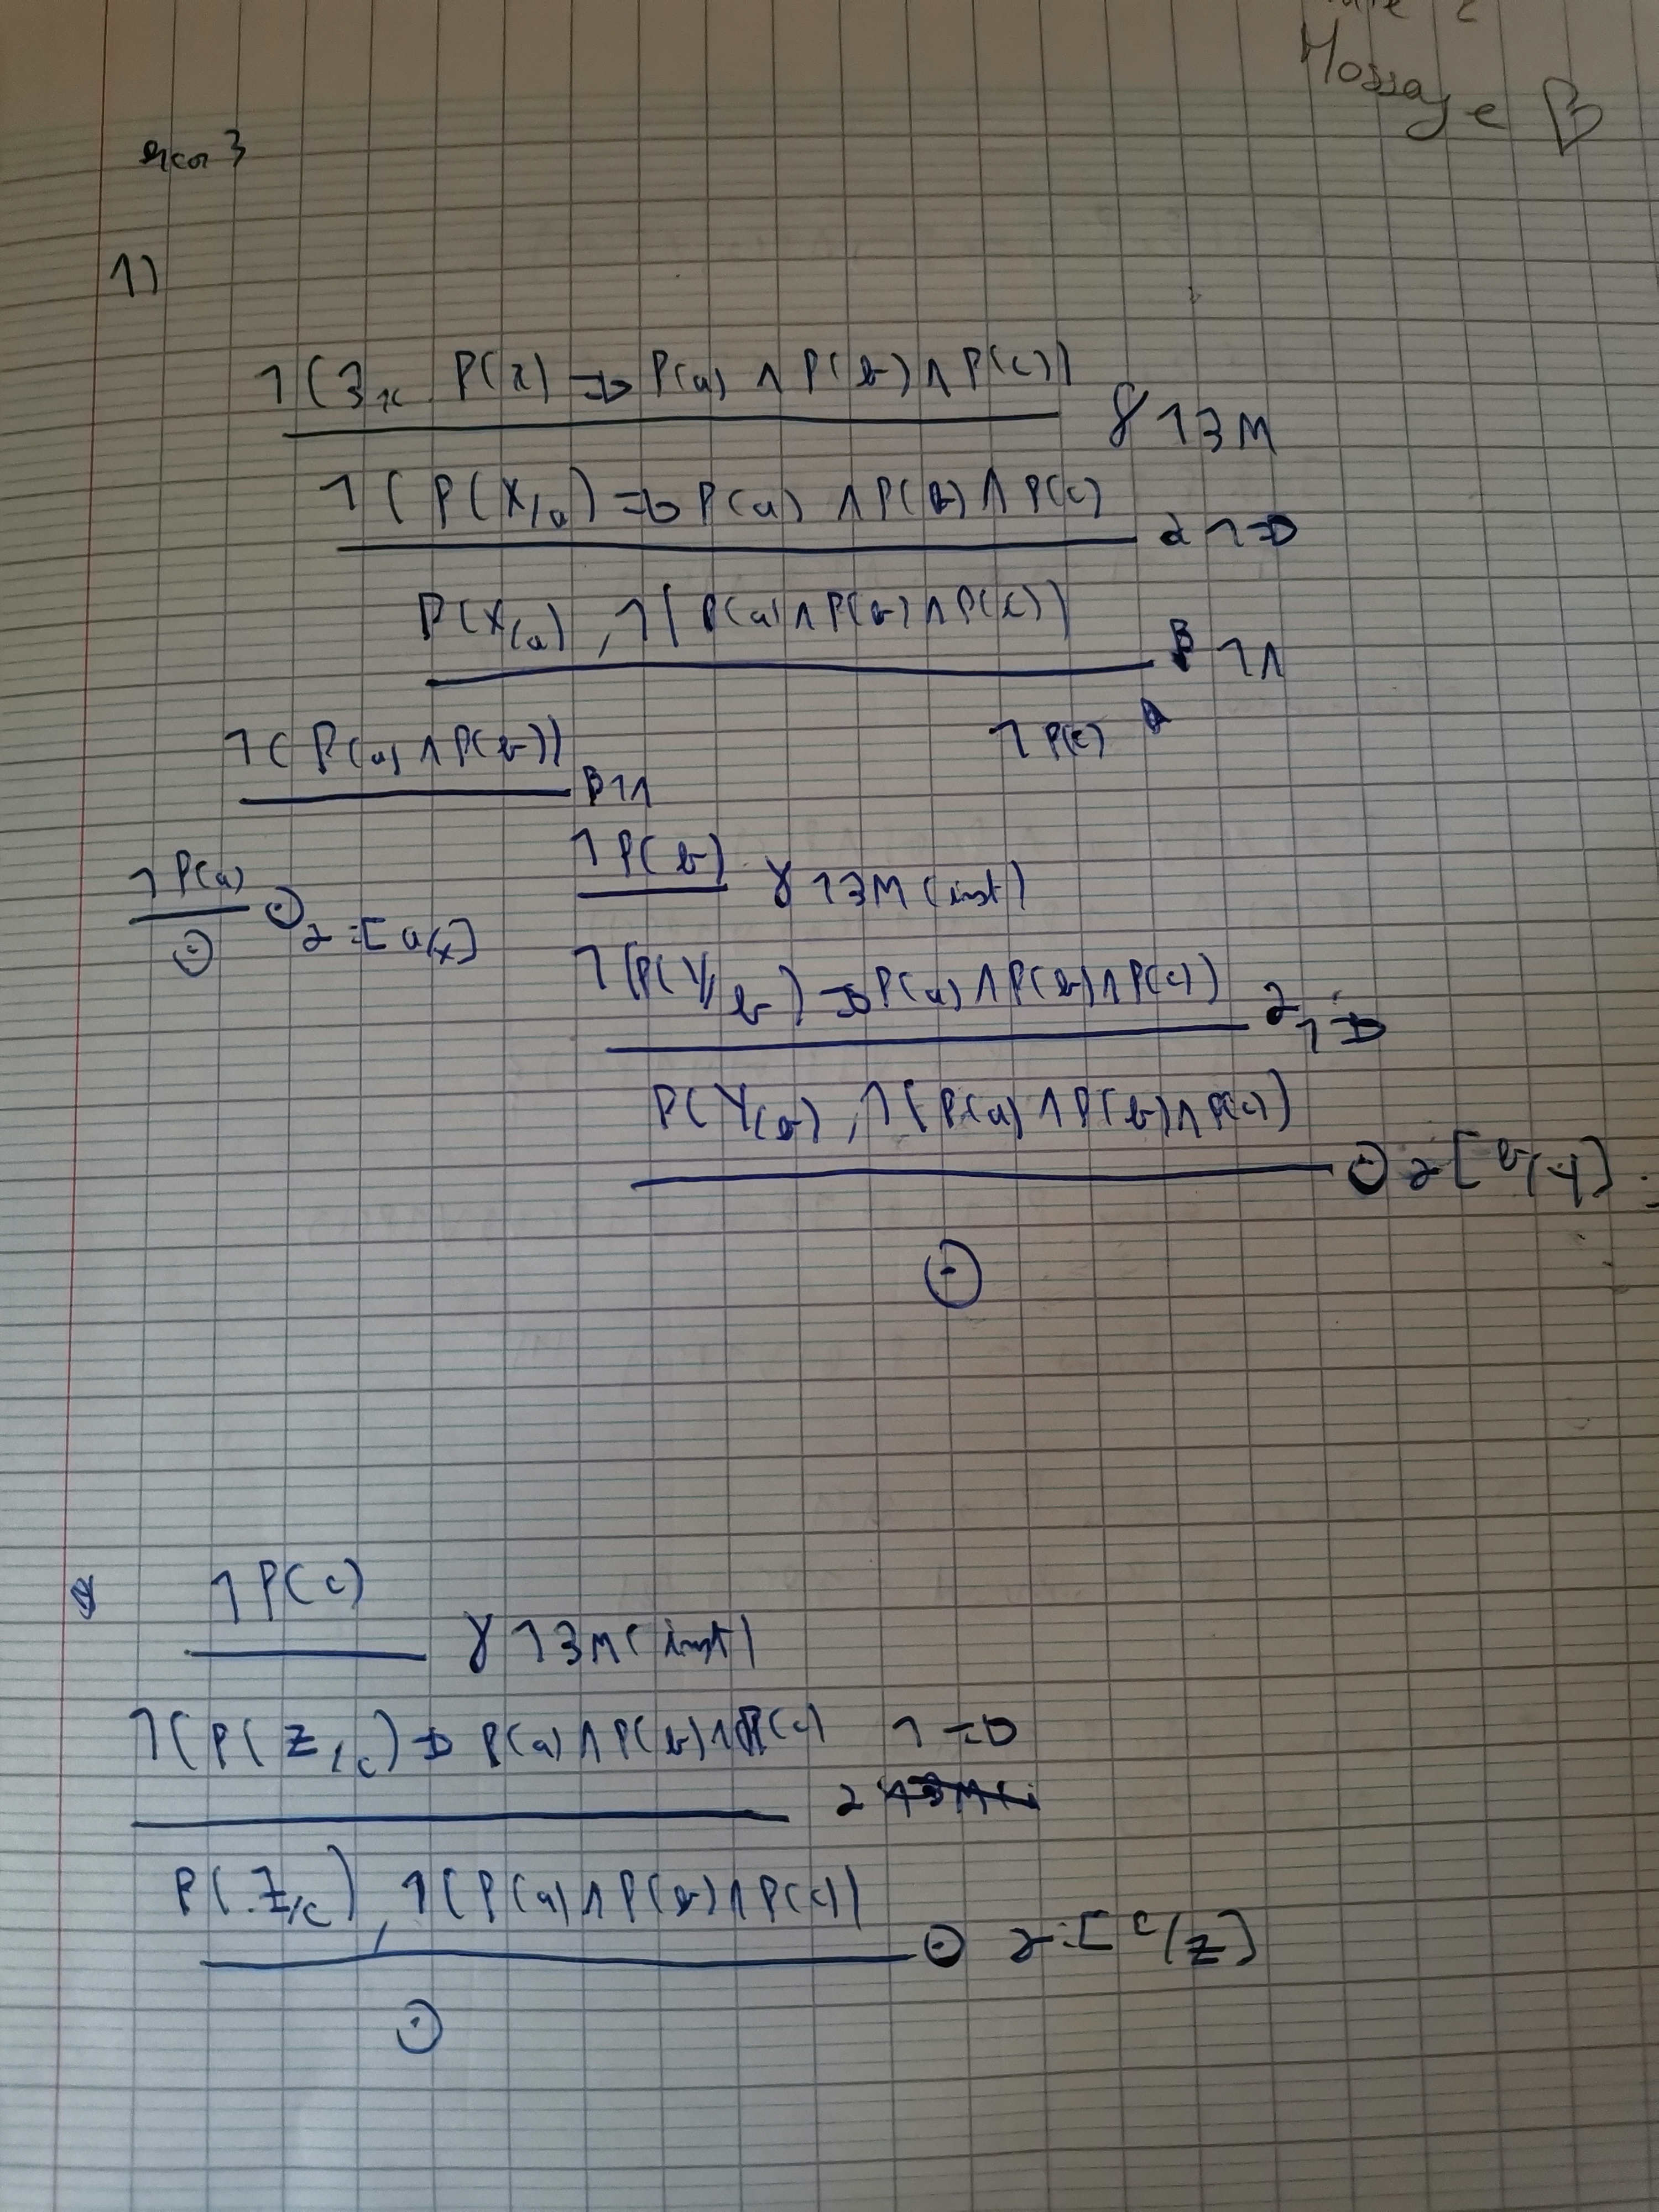 Mossaye B
3
1)
¬(∃x P(x) ⇒ P(a) ∧ P(b) ∧ P(c))
γ¬∃M
¬(P(X/a) ⇒ P(a) ∧ P(b) ∧ P(c)
α¬⇒
P(X/a), ¬(P(a) ∧ P(b) ∧ P(c))
β¬∧
¬(P(a) ∧ P(b))
¬P(c)
β¬∧
¬P(b)
γ¬∃M(inst)
¬P(a)
⊙
σ=[a/x]
⊙
¬(P(Y/b) ⇒ P(a) ∧ P(b) ∧ P(c))
α¬⇒
P(Y/b), ¬(P(a) ∧ P(b) ∧ P(c))
⊙ σ[b/y]
⊙
¬P(c)
γ¬∃M(inst)
¬(P(Z/c) ⇒ P(a) ∧ P(b) ∧ P(c) ¬⇒
α
P(Z/c), ¬(P(a) ∧ P(b) ∧ P(c))
⊙ σ=[c/z]
⊙